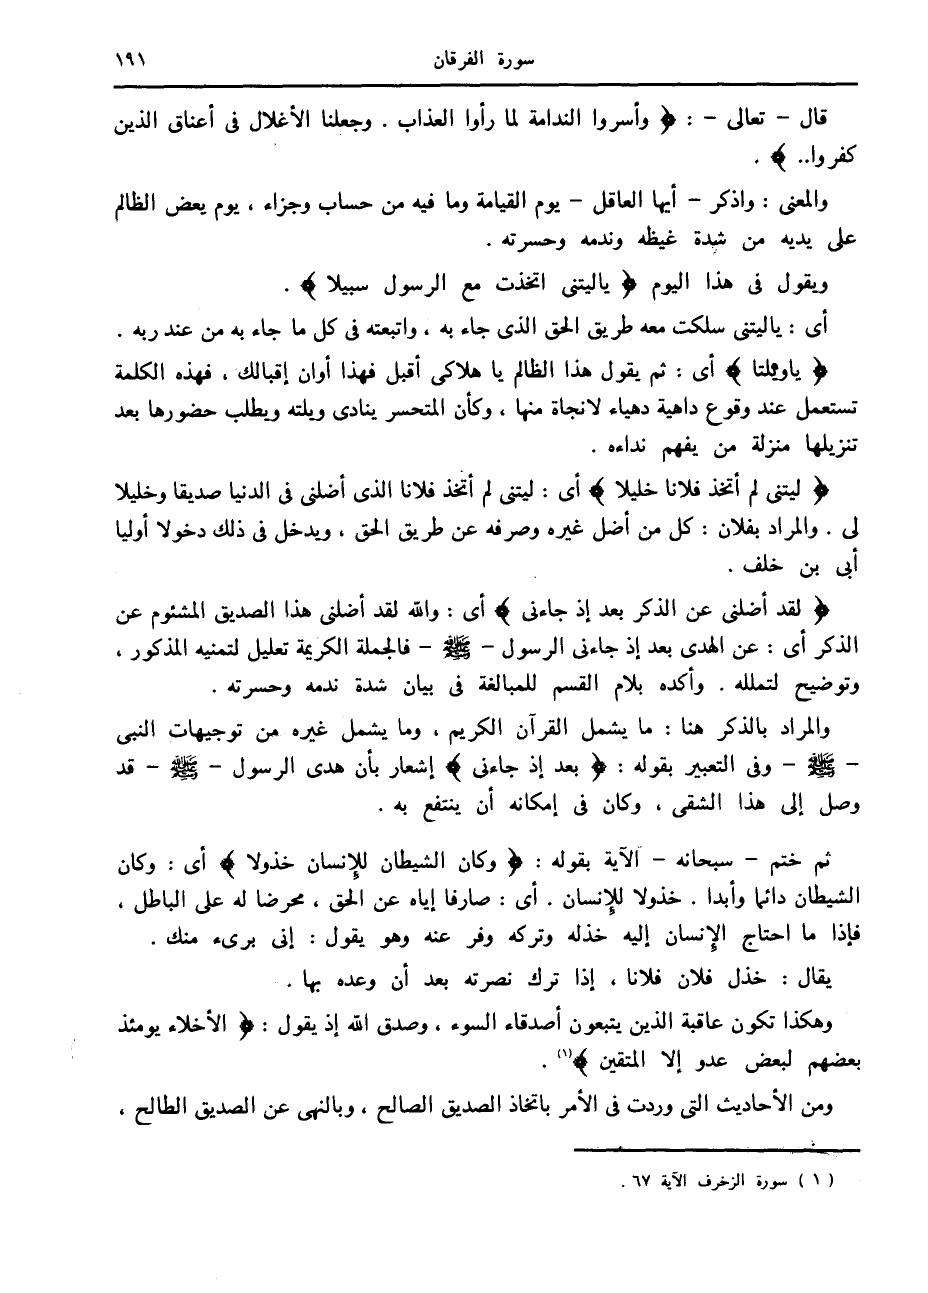 سورة الفرقان ١٩١
قال – تعالى – : ﴿ وأسروا الندامة لما رأوا العذاب . وجعلنا الأغلال فى أعناق الذين
كفروا.. ﴾ .
والمعنى : واذكر – أيها العاقل – يوم القيامة وما فيه من حساب وجزاء ، يوم يعض الظالم
على يديه من شدة غيظه وندمه وحسرته .
ويقول فى هذا اليوم ﴿ ياليتنى اتخذت مع الرسول سبيلا ﴾ .
أى : ياليتنى سلكت معه طريق الحق الذى جاء به ، واتبعته فى كل ما جاء به من عند ربه .
﴿ ياويلتا ﴾ أى : ثم يقول هذا الظالم يا هلاكى أقبل فهذا أوان إقبالك ، فهذه الكلمة
تستعمل عند وقوع داهية دهياء لانجاة منها ، وكأن المتحسر ينادى ويلته ويطلب حضورها بعد
تنزيلها منزلة من يفهم نداءه .
﴿ ليتنى لم أتخذ فلانا خليلا ﴾ أى : ليتنى لم أتخذ فلانا الذى أضلنى فى الدنيا صديقا وخليلا
لى . والمراد بفلان : كل من أضل غيره وصرفه عن طريق الحق ، ويدخل فى ذلك دخولا أوليا
أبى بن خلف .
﴿ لقد أضلنى عن الذكر بعد إذ جاءنى ﴾ أى : والله لقد أضلنى هذا الصديق المشئوم عن
الذكر أى : عن الهدى بعد إذ جاءنى الرسول – ﷺ – فالجملة الكريمة تعليل لتمنيه المذكور ،
وتوضيح لتملله . وأكده بلام القسم للمبالغة فى بيان شدة ندمه وحسرته .
والمراد بالذكر هنا : ما يشمل القرآن الكريم ، وما يشمل غيره من توجيهات النبى
– ﷺ – وفى التعبير بقوله : ﴿ بعد إذ جاءنى ﴾ إشعار بأن هدى الرسول – ﷺ – قد
وصل إلى هذا الشقى ، وكان فى إمكانه أن ينتفع به .
ثم ختم – سبحانه – الآية بقوله : ﴿ وكان الشيطان للإنسان خذولا ﴾ أى : وكان
الشيطان دائما وأبدا . خذولا للإنسان . أى : صارفا إياه عن الحق ، محرضا له على الباطل ،
فإذا ما احتاج الإنسان إليه خذله وتركه وفر عنه وهو يقول : إنى برىء منك .
يقال : خذل فلان فلانا ، إذا ترك نصرته بعد أن وعده بها .
وهكذا تكون عاقبة الذين يتبعون أصدقاء السوء ، وصدق الله إذ يقول : ﴿ الأخلاء يومئذ
بعضهم لبعض عدو إلا المتقين ﴾(١) .
ومن الأحاديث التى وردت فى الأمر باتخاذ الصديق الصالح ، وبالنهى عن الصديق الطالح ،
( ١ ) سورة الزخرف الآية ٦٧ .